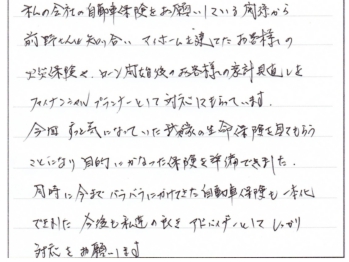 私の会社の自動車保険をお願いしている関係から
前野さんと知り合い マイホームを建てたお客様の
火災保険や、ローン開始後のお客様の家計見直しを
ファイナンシャルプランナーとして対応してもらっています.
今回 ずっと気になっていた我家の生命保険を見てもらう
ことになり 目的にかなった保険を準備できました.
同時に今までバラバラにかけてきた自動車保険も一本化
できました 今後も私達の良きアドバイザーとして しっかり
対応をお願いします